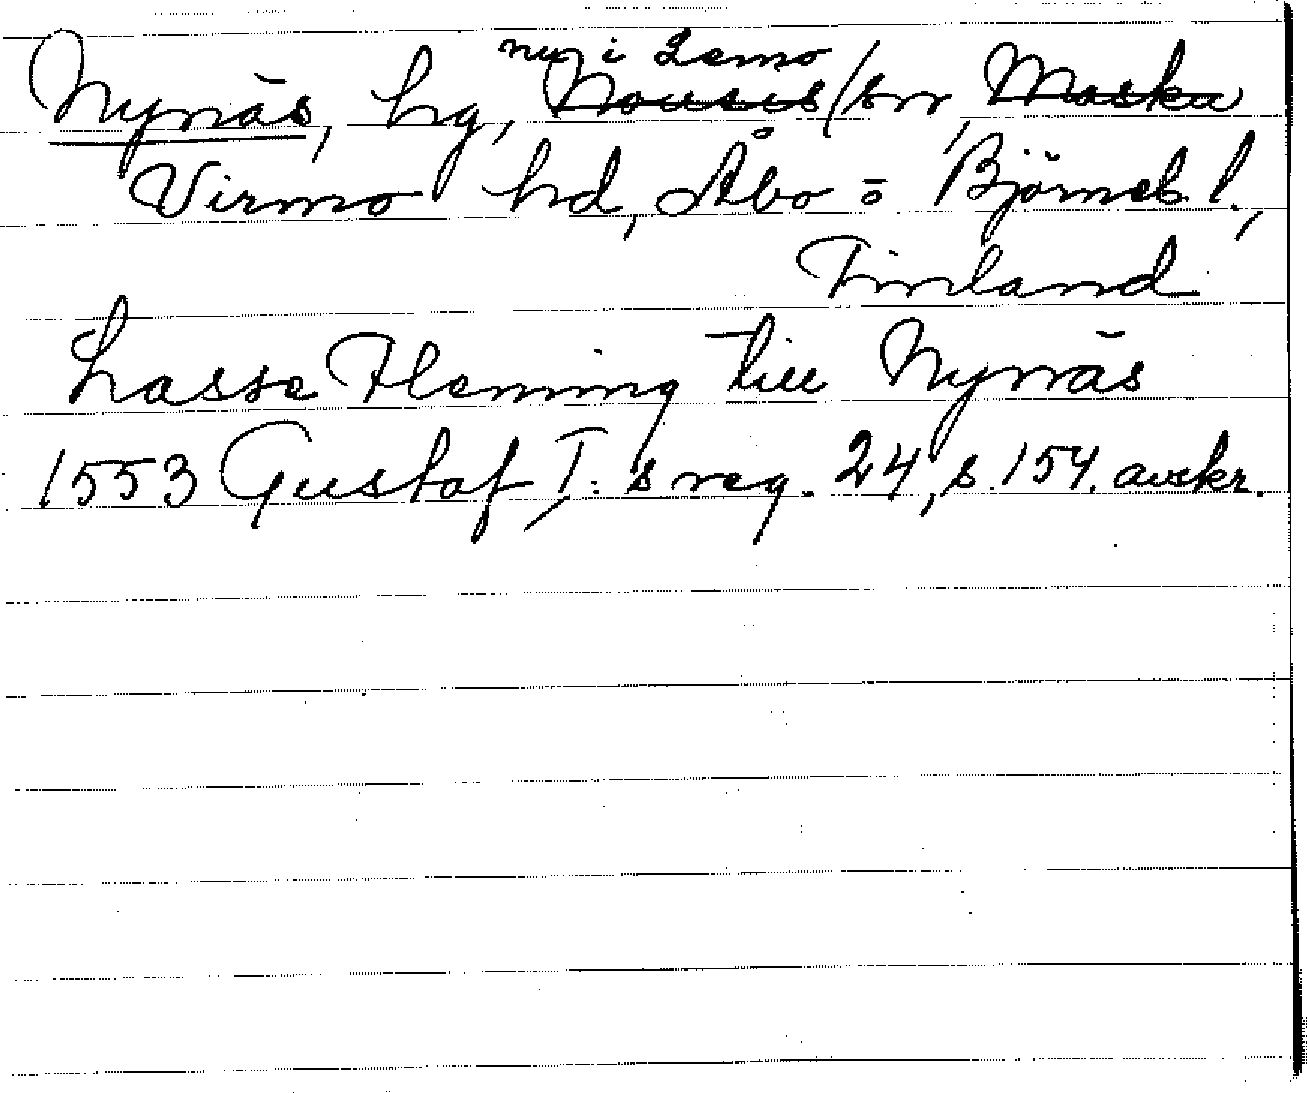 nu i Lemo
Nynäs, hg, Nousis sn, Maska
Virmo hd, Åbo o Björneb. l.,
Finland
Lasse Fleming till Nynäs
1553 Gustaf I:s reg. 24, s. 154. avskr.